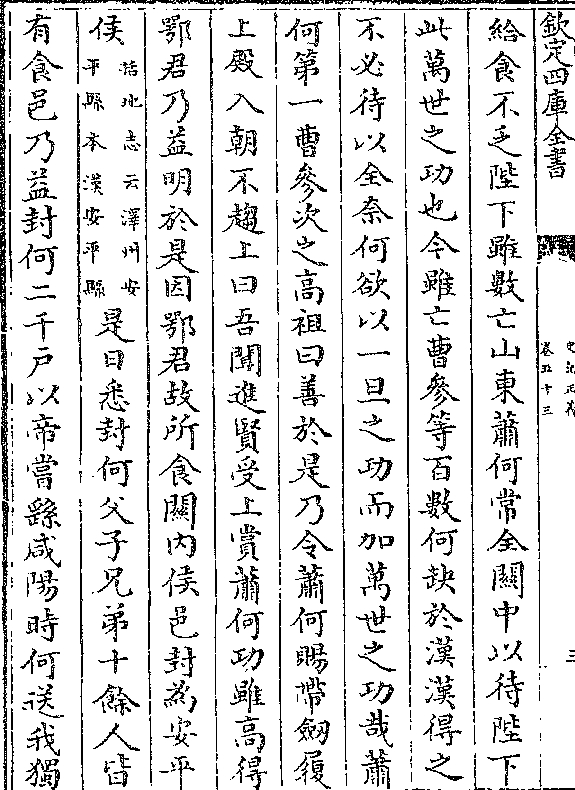 欽定四庫全書
史記正義
卷五十三
三
給食不乏陛下雖數亡山東蕭何常全關中以待陛下
此萬世之功也今雖亡曹參等百數何缺於漢漢得之
不必待以全奈何欲以一旦之功而加萬世之功哉蕭
何第一曹參次之高祖曰善於是乃令蕭何賜帶劔履
上殿入朝不趨上曰吾聞進賢受上賞蕭何功雖高得
鄂君乃益明於是因鄂君故所食關內侯邑封為安平
侯括地志云澤州安平縣本漢安平縣是日悉封何父子兄弟十餘人皆
有食邑乃益封何二千戶以帝嘗繇咸陽時何送我獨